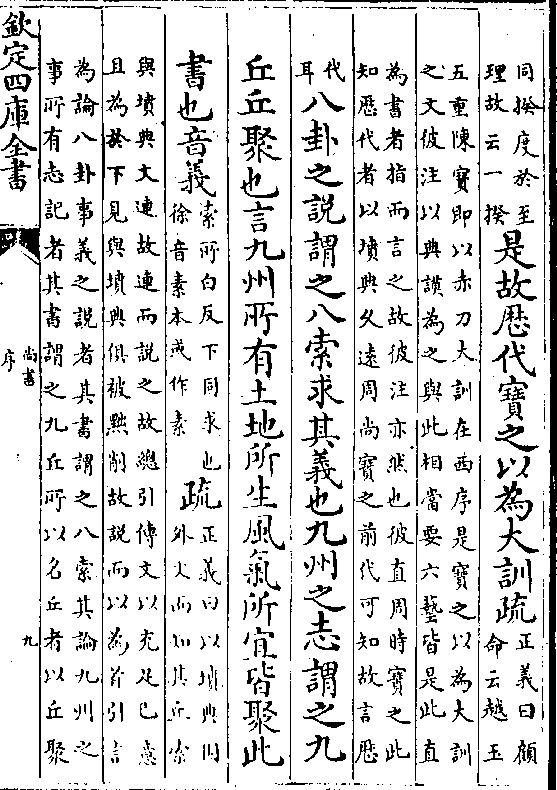 同揆度於至
理故云一揆
是故歷代寶之以為大訓疏
正義曰顧
命云越玉
五重陳寶即以赤刀大訓在西序是寶之以為大訓
之文彼注以典謨為之與此相當要六藝皆是此直
為書者指而言之故彼注亦然也彼直周時寶之此
知歷代者以墳典久遠周尚寶之前代可知故言歷
代
耳
八卦之説謂之八索求其義也九州之志謂之九
丘丘聚也言九州所有土地所生風氣所宜皆聚此
書也音義
索所白反下同求也
徐音素本或作素
疏
正義曰以墳典因
外文而知其丘索
與墳典文連故連而説之故總引傳文以充足已意
且為於下見與墳典俱被黜削故説而以為首引言
為論八卦事義之説者其書謂之八索其論九州之
事所有志記者其書謂之九丘所以名丘者以丘聚
欽定四庫全書
尚書
序
九